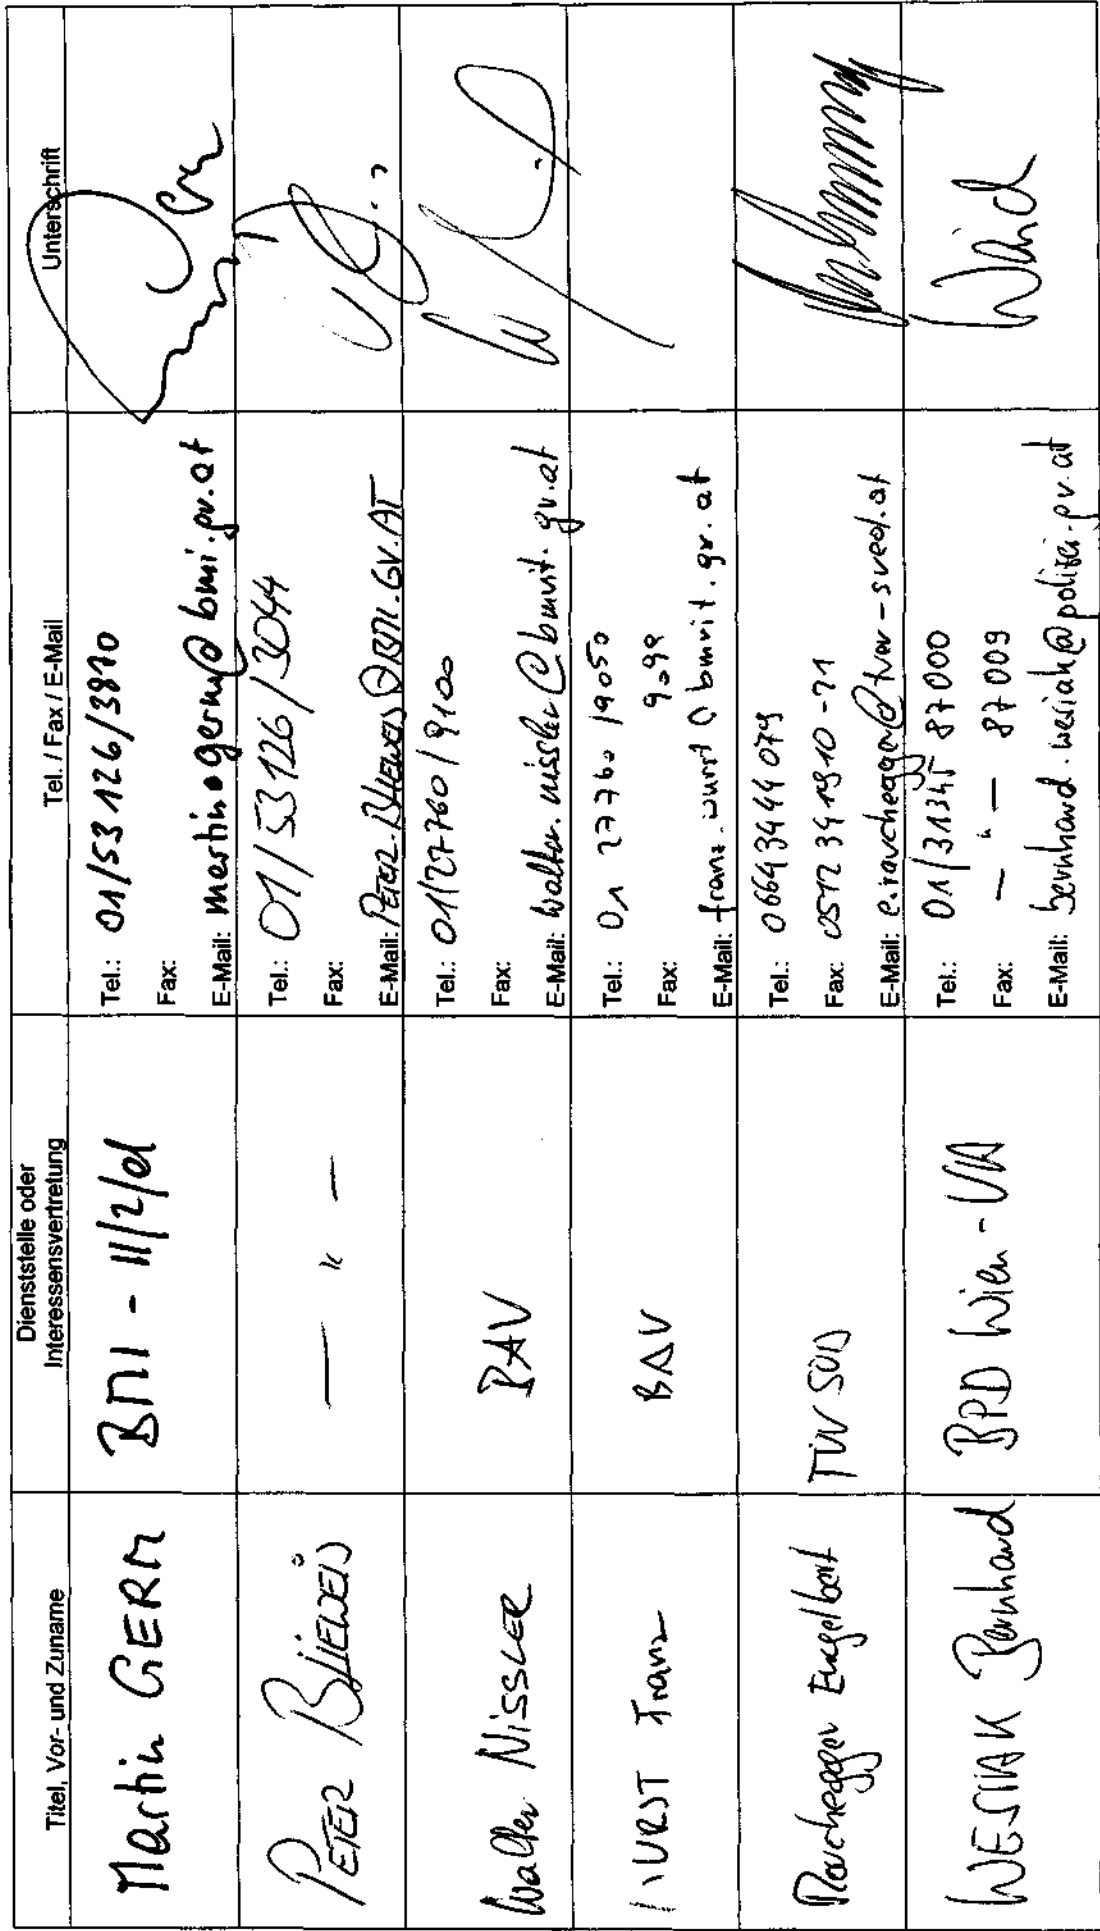 Titel, Vor- und Zuname
Dienststelle oder
Interessensvertretung
Tel. / Fax / E-Mail
Unterschrift
Martin GERM
BMI - II/2/d
Tel.: 01/53126/3870
Fax:
E-Mail: martin.germ@bmi.gv.at
PETER BLIEWEIS
— " —
Tel.: 01/53126/3044
Fax:
E-Mail: PETER.BLIEWEIS@BMI.GV.AT
Walter NISSLER
BAV
Tel.: 01/27760/9100
Fax:
E-Mail: walter.nissler@bmvit.gv.at
WURST Franz
BAV
Tel.: 01 27760/9050
Fax: 9099
E-Mail: franz.wurst@bmvit.gv.at
Rauchegger Engelbert
TÜV SÜD
Tel.: 0664 3444 079
Fax: 0512 341910-21
E-Mail: e.rauchegger@tuev-sued.at
WESIAK Bernhard
BPD Wien - VA
Tel.: 01/31345 87000
Fax: — " — 87009
E-Mail: bernhard.wesiak@polizei.gv.at